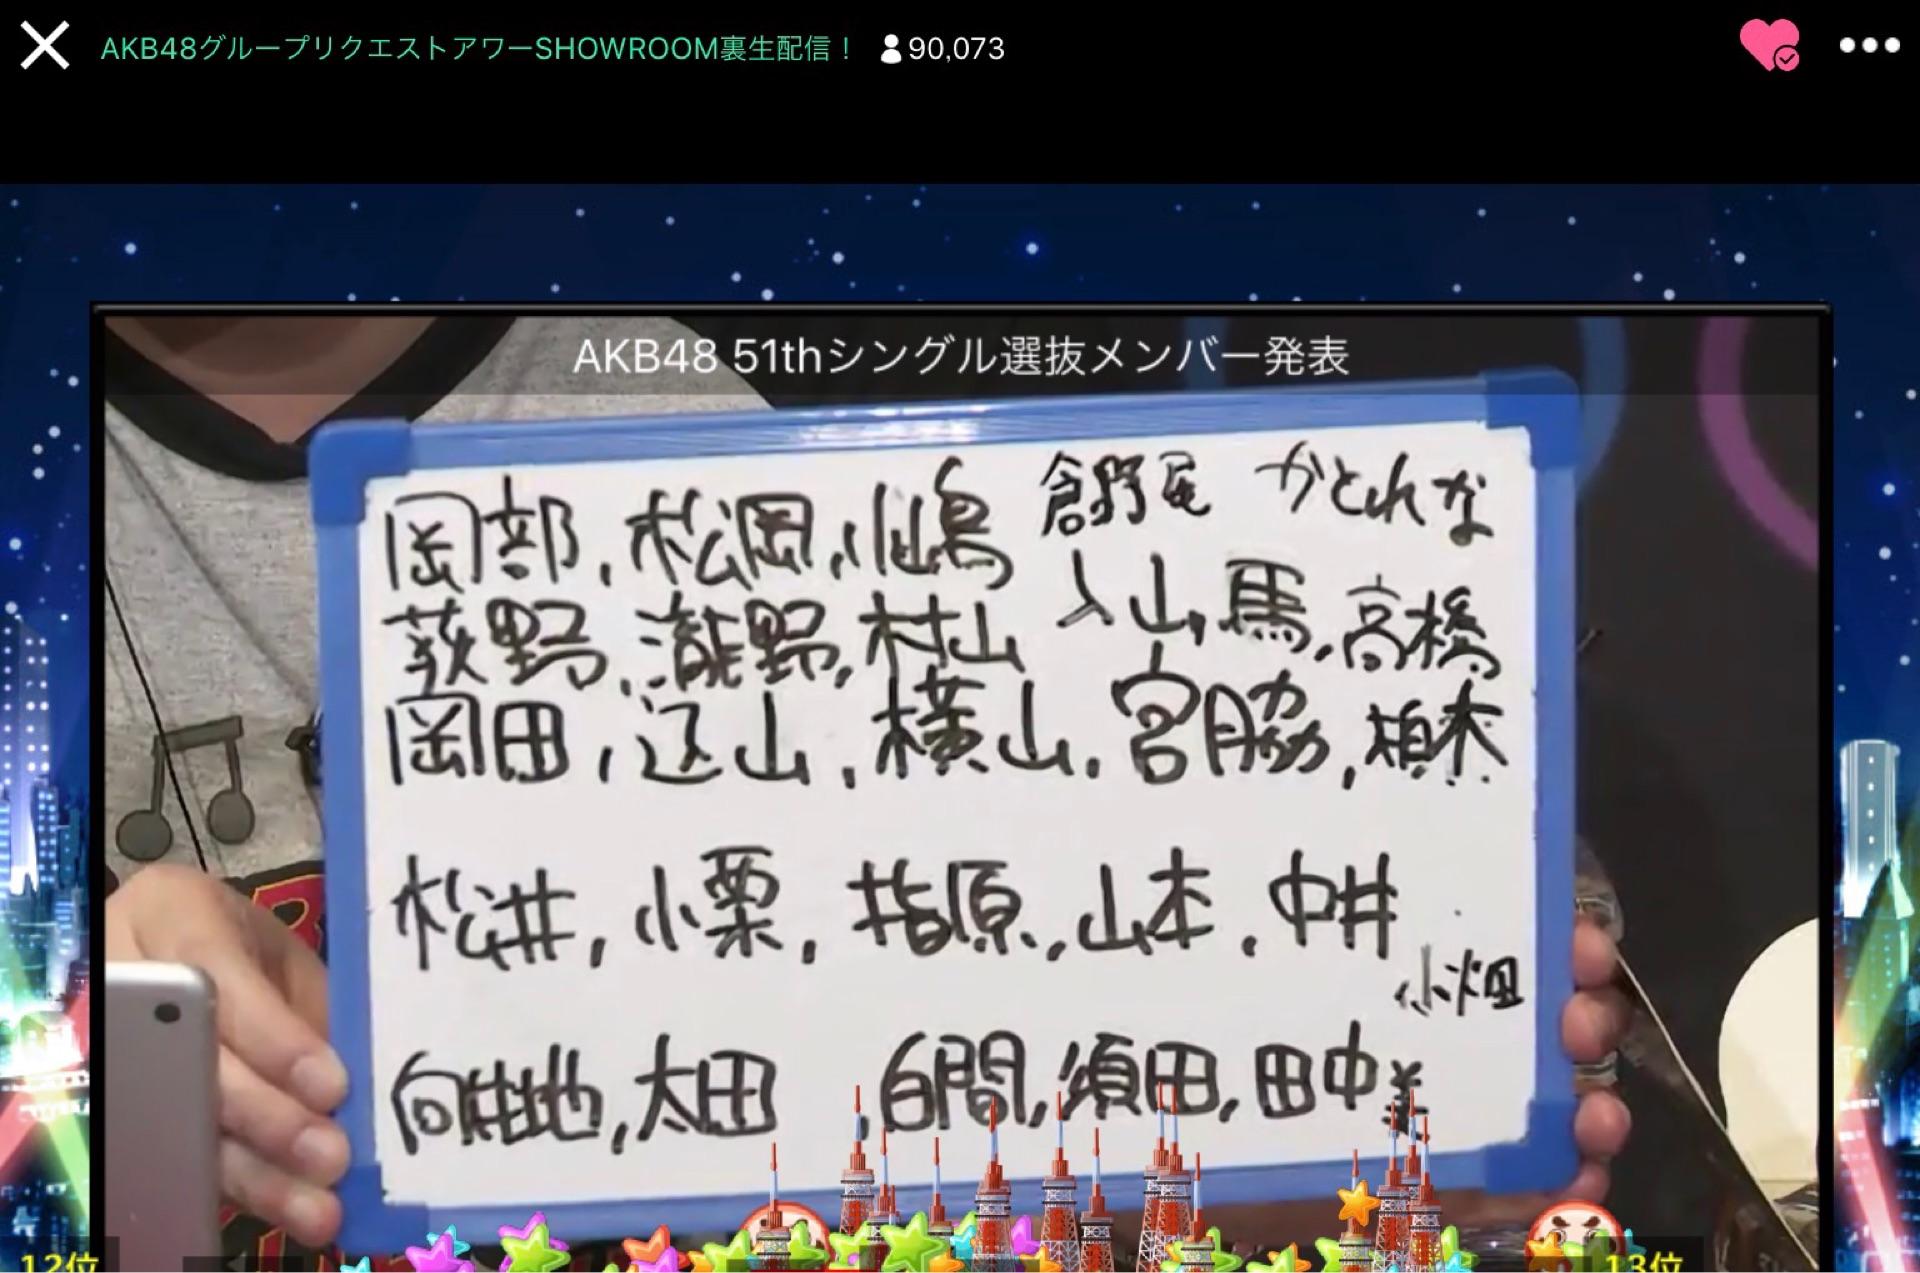 AKB48グループリクエストアワーSHOWROOM裏生配信！ 90,073
AKB48 51thシングル選抜メンバー発表
倉野尾 かとれな
岡部,松岡,小嶋
入山,馬,高橋
荻野,瀧野,村山
岡田,込山,横山,宮脇,柏木
松井,小栗,指原,山本,中井
小畑
向井地,太田,白間,須田,田中美
12位 13位